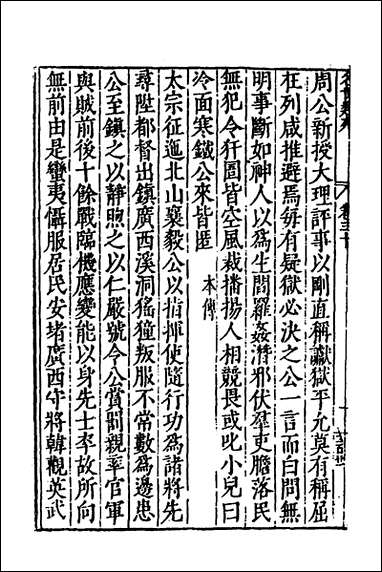 周公新授大理評事以剛直稱讞獄平允莫有稱屈
枉列咸推避焉每有疑獄必決之公一言而白問無
明事斷如神人以爲生閻羅姦潛邪伏羣吏膽落民
無犯令犴圄皆空風裁播揚人相競畏或叱小兒曰
冷面寒鐵公來皆匿 本傳
太宗征迤北山襄毅公以指揮使隨行功爲諸將先
尋陞都督出鎮廣西溪洞猺獞叛服不常數爲邊患
公至鎮之以靜煦之以仁嚴號令公賞罰親率官軍
與賊前後十餘戰臨機應變能以身先士卒故所向
無前由是蠻夷懾服居民安堵廣西守將韓觀英武